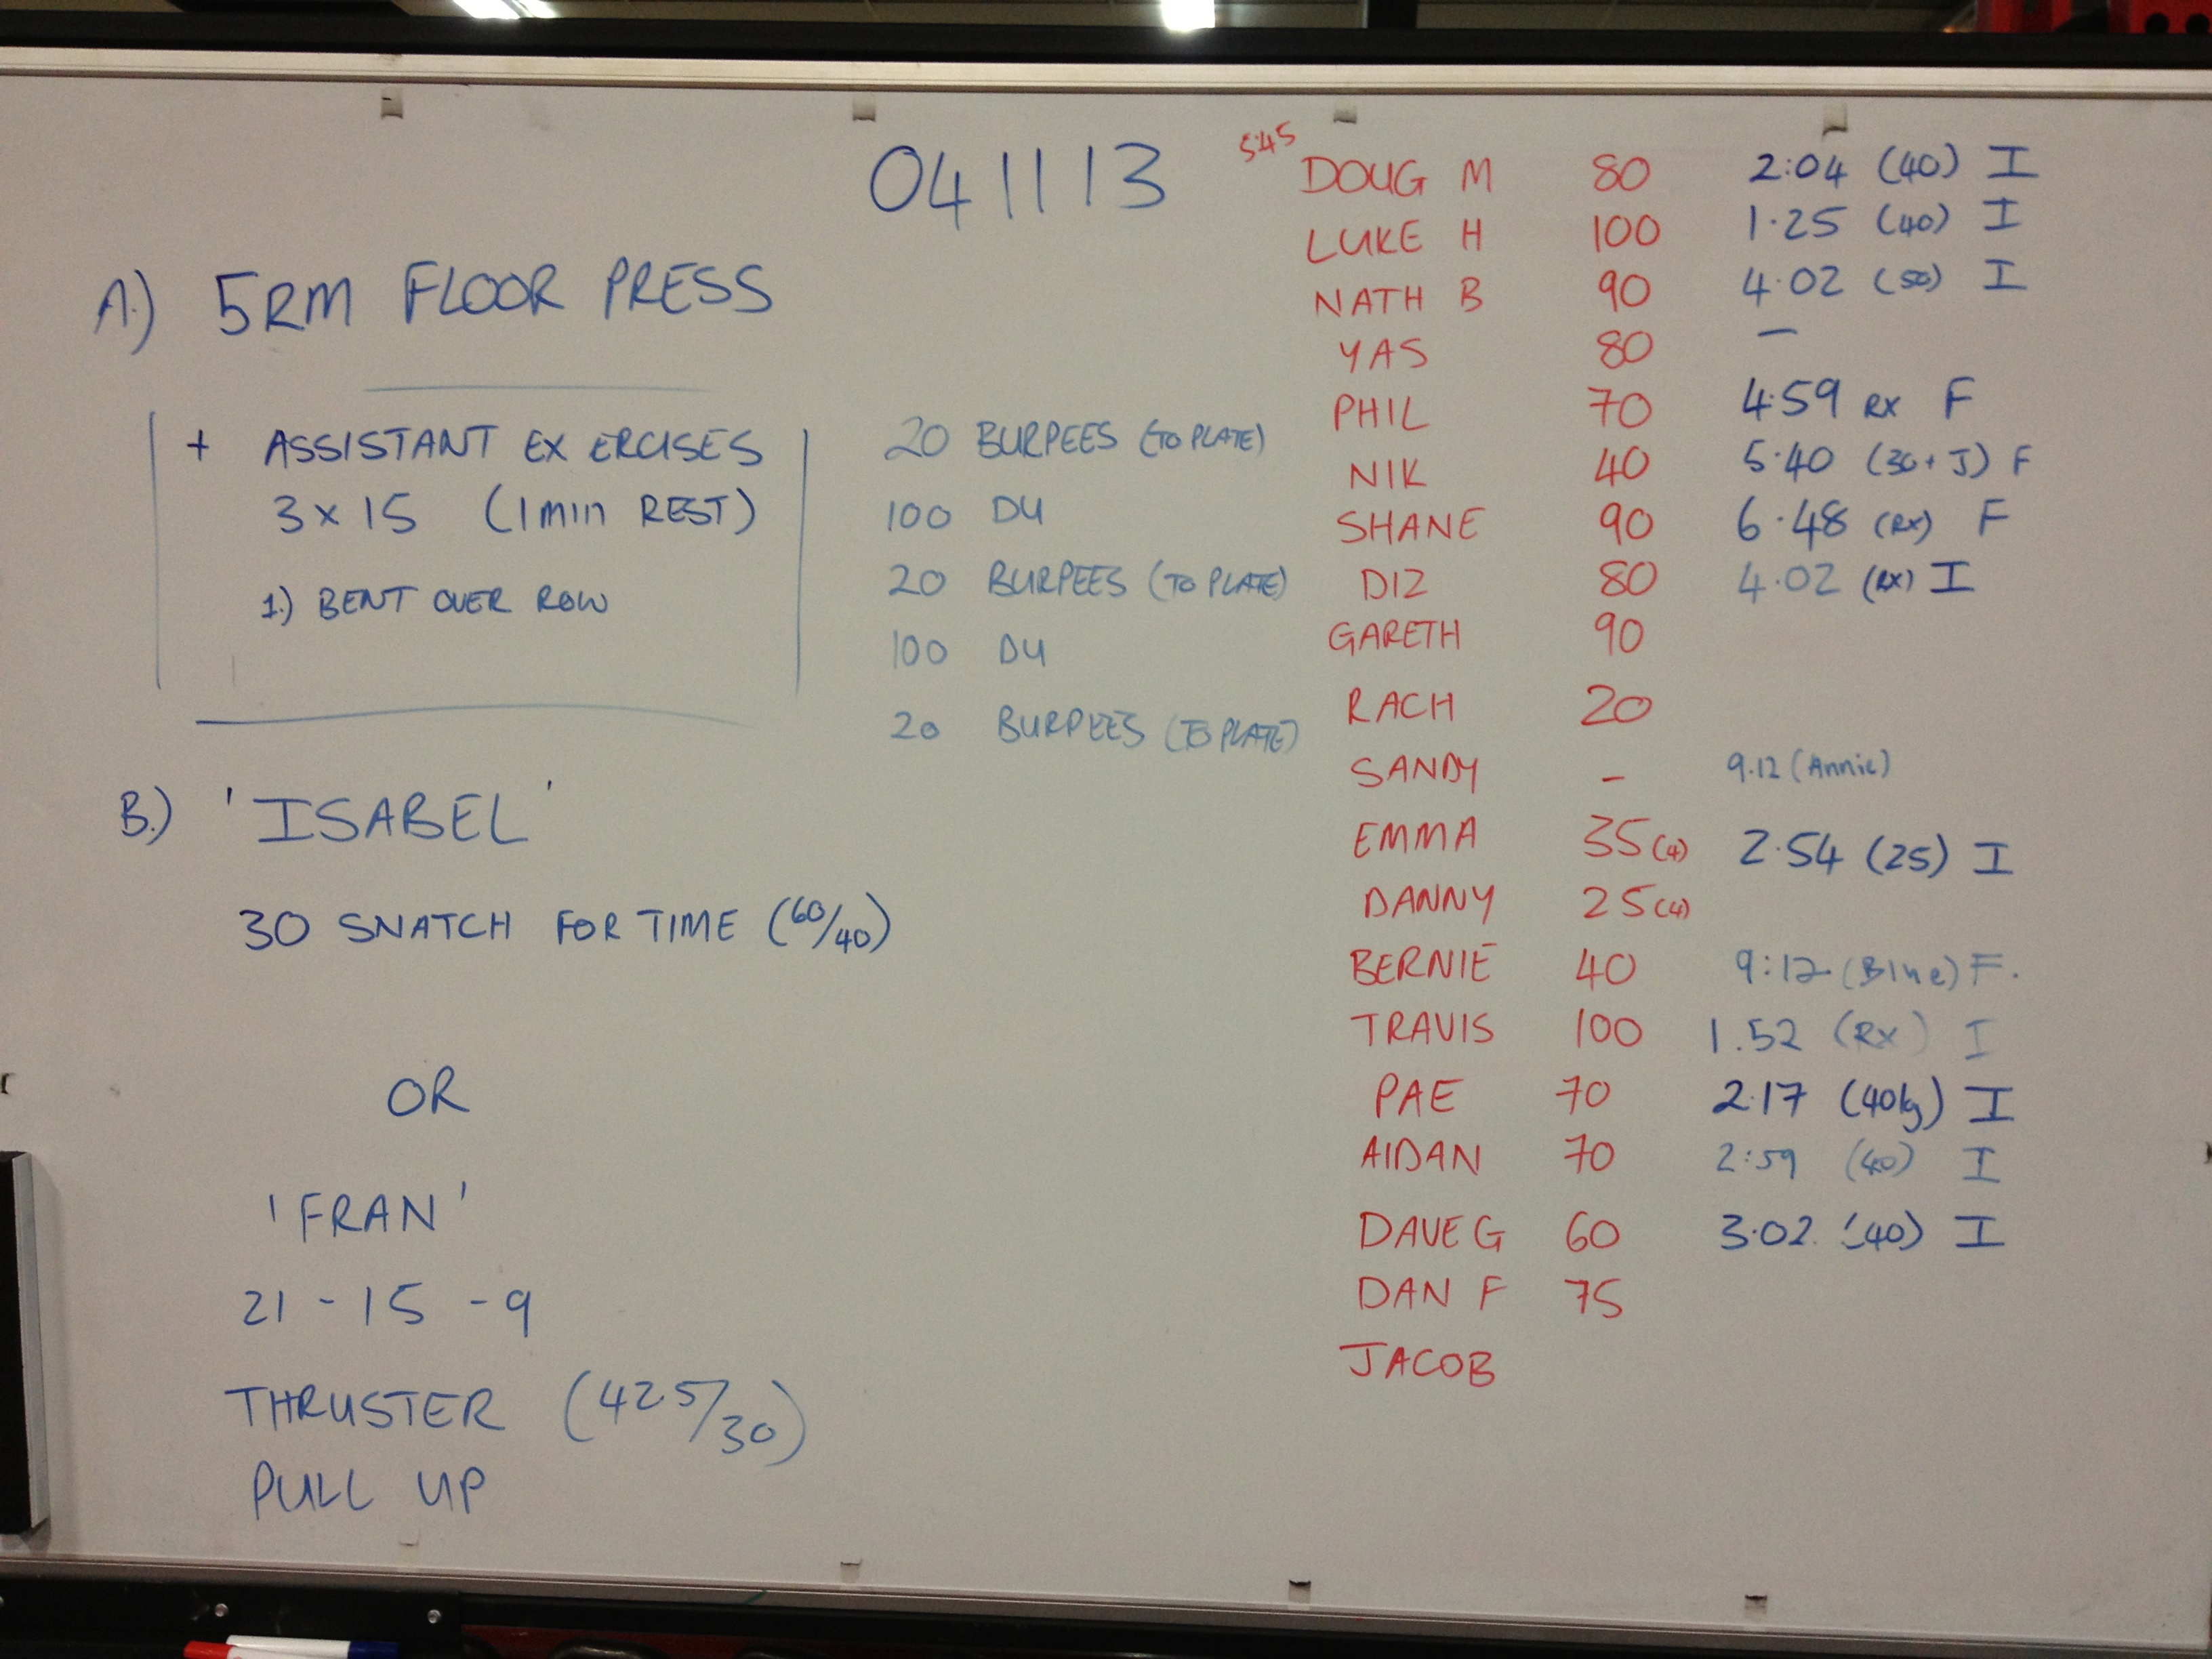 041113
A.) 5RM FLOOR PRESS
+ ASSISTANT EXERCISES
3 x 15 (1 min REST)
1.) BENT OVER ROW
B.) 'ISABEL'
30 SNATCH FOR TIME (60/40)
OR
'FRAN'
21 - 15 - 9
THRUSTER (425/30)
PULL UP
20 BURPEES (TO PLATE)
100 DU
20 BURPEES (TO PLATE)
100 DU
20 BURPEES (TO PLATE)
5:45
DOUG M 80 2:04 (40) I
LUKE H 100 1.25 (40) I
NATH B 90 4.02 (50) I
YAS 80 –
PHIL 70 4.59 RX F
NIK 40 5.40 (30+J) F
SHANE 90 6.48 (RX) F
DIZ 80 4.02 (RX) I
GARETH 90
RACH 20
SANDY – 9.12 (Annie)
EMMA 35 (4) 2.54 (25) I
DANNY 25 (4)
BERNIE 40 9:12 (Blue) F.
TRAVIS 100 1.52 (RX) I
PAE 70 2.17 (40kg) I
AIDAN 70 2:59 (40) I
DAVE G 60 3.02 (40) I
DAN F 75
JACOB